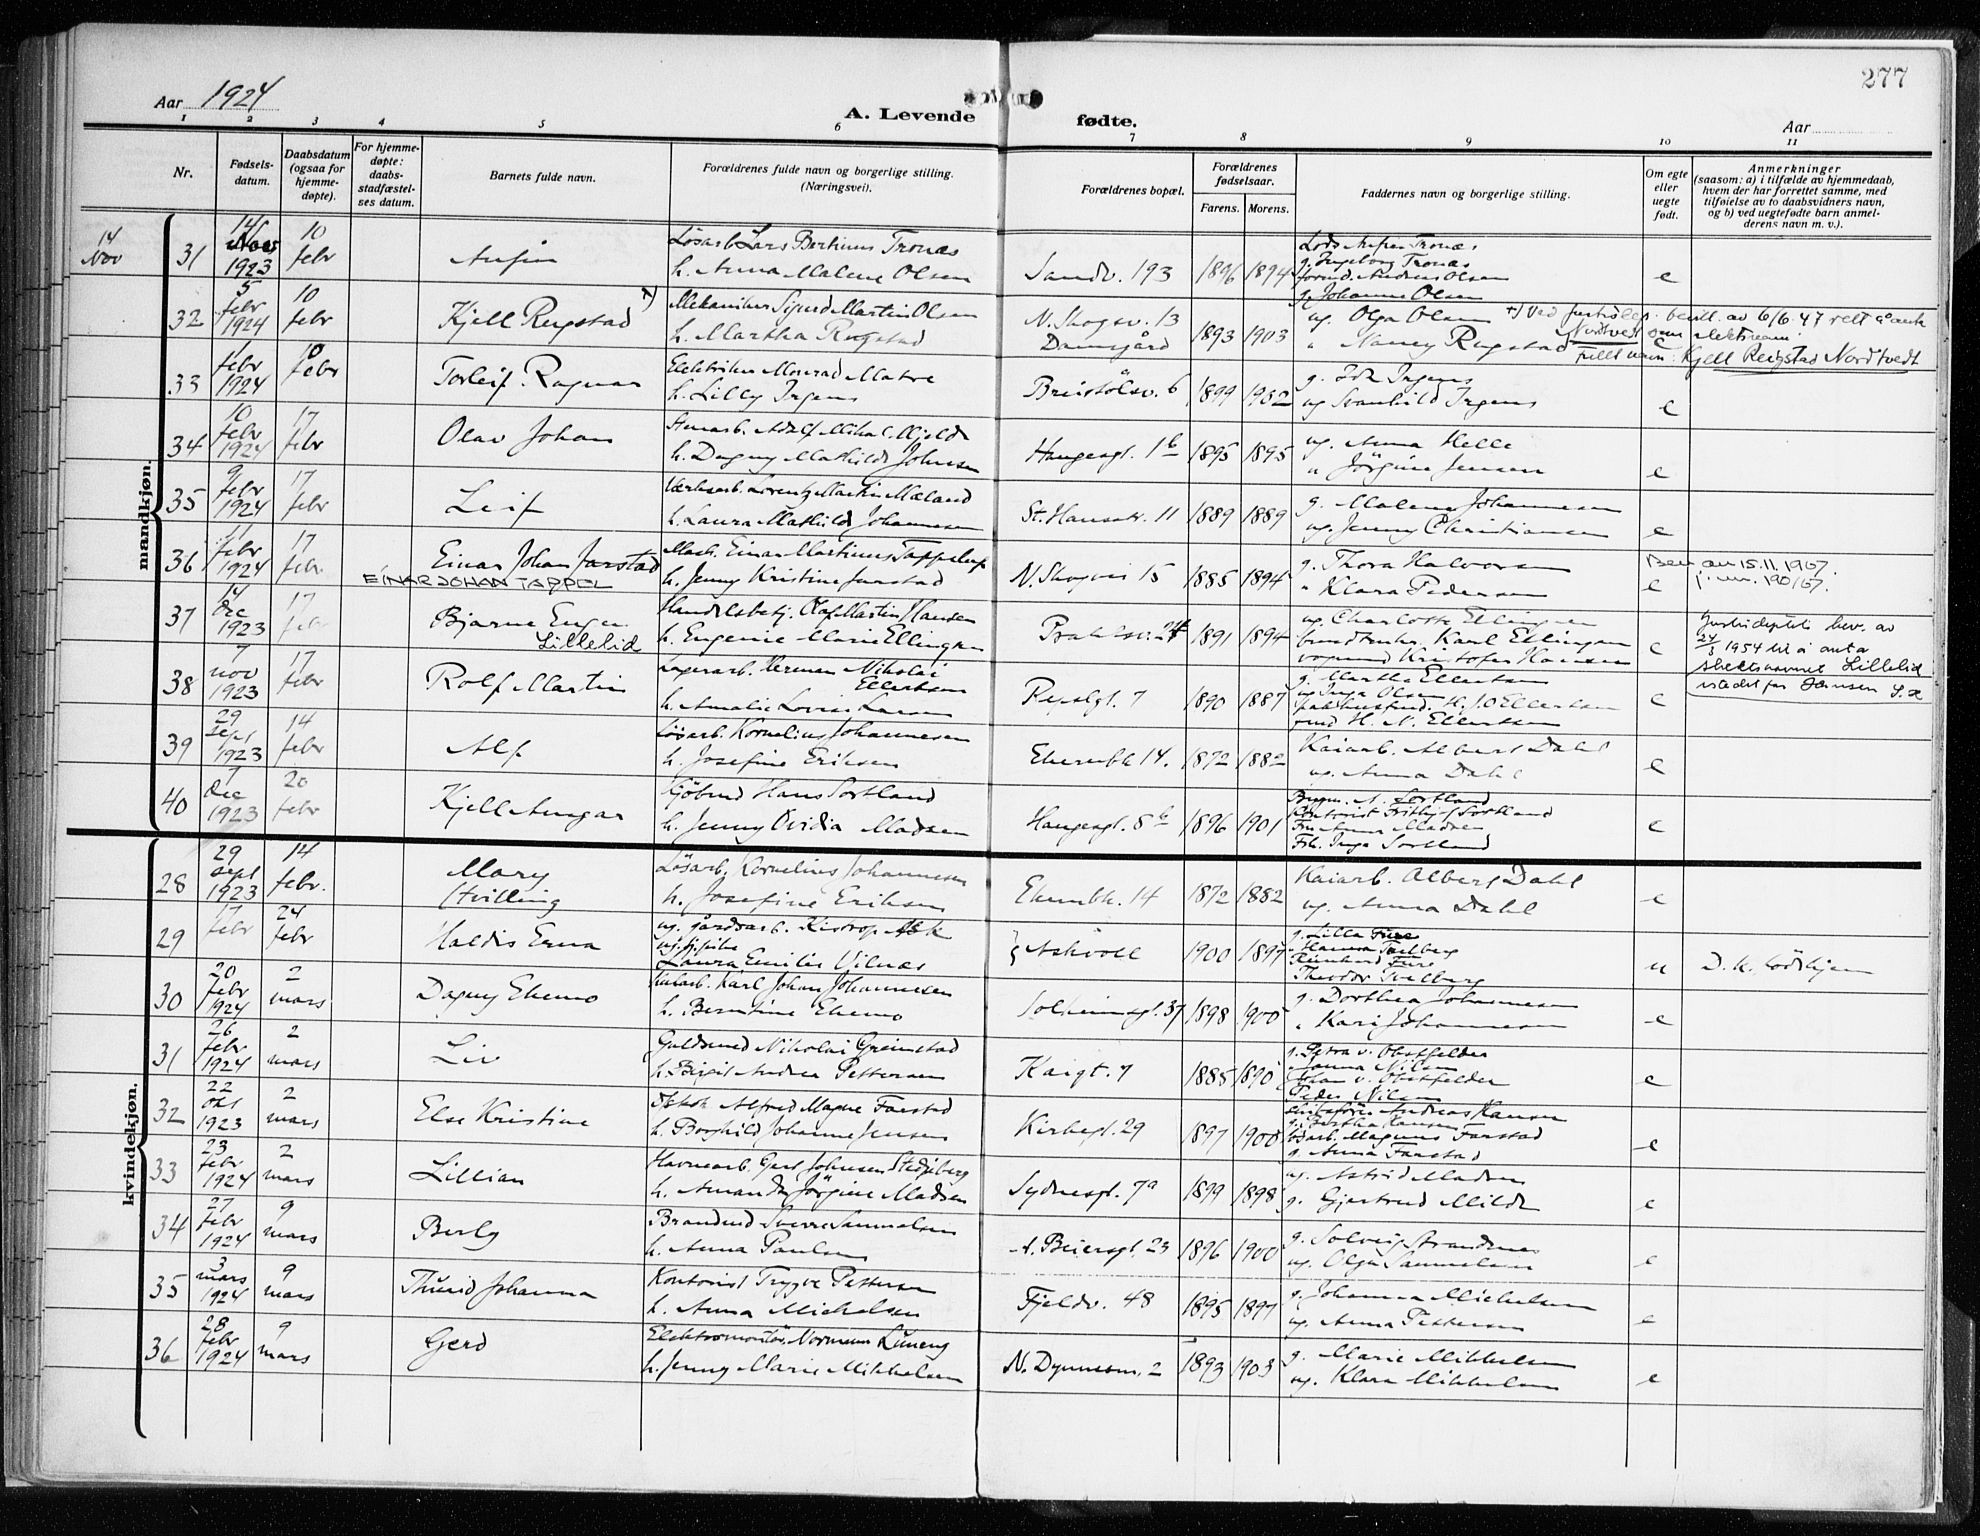 277
Aar 1924
A. Levende fødte.
Aar
1 2 3 4 5 6 7 8 9 10 11
Nr.
Fødsels-
datum.
Daabsdatum
(ogsaa for
hjemme-
døpte).
For hjemme-
døpte:
daabs-
stadfæstel-
ses datum.
Barnets fulde navn.
Forældrenes fulde navn og borgerlige stilling.
(Næringsvei).
Forældrenes bopæl.
Forældrenes
fødselsaar.
Farens. Morens.
Faddernes navn og borgerlige stilling.
Om egte
eller
uegte
født.
Anmerkninger
(saasom: a) i tilfælde av hjemmedaab,
hvem der har forrettet samme, med
tilføielse av to daabsvidners navn,
og b) ved uegtefødte barn anmel-
derens navn m. v.).
mandkjøn.
14 Nov
31 14 Nov 1923 10 febr
Løsarb. Lars Bertinus Tronæs
h. Anna Malene Olsen
Sandv. 193 1896 1894
g. Ingeborg Tronæs
Andreas Olsen
g. Johanne Olsen
e
32 5 febr 1924 10 febr Kjell Rugstad +)
Mekaniker Sigurd Martin Olsen
h. Martha Rugstad
N. Skogsv. 13
Damsgård
1893 1903
ug. Olga Olsen
" Nancy Rugstad
e
+) Ved bevill. av 6/6 47 rett å anta
Nordtvedt som slektsnavn
Fullt navn: Kjell Rugstad Nordtvedt
33 1 febr 1924 10 febr Torleif Ragnar
Elektriker Monrad Matre
h. Lilly Irgens
Breistølsv. 6 1899 1902
g. Irgens
ug Svanhild Irgens
e
34 10 febr 1924 17 febr Olav Johan
Stenarb. Adolf Mikal Mjelde
h. Dagny Mathilde Johnsen
Haugesgt. 1b 1895 1895
ug. Anna Helle
" Jörgine Jensen
e
35 9 febr 1924 17 febr Leif
Verksarb. Lorentz Martin Mæland
h. Laura Mathilde Johannesen
St. Hansstr. 11 1889 1889
g. Malene Johannesen
ug. Jenny Christiansen
e
36 11 febr 1924 17 febr Einar Johan Jarstad
EINAR JOHAN TAPPEL
Einar Martinus Tappel
h. Jenny Kristine Jarstad
N. Skogvei 15 1885 1894
g. Thora Halvorsen
" Klara Pedersen
e
Bev. av 15.11.1967.
j. nr. 190/67.
37 14 dec 1923 17 febr Bjarne Eugen
Lillelid
Handelsbetj. Olaf Martin Hansen
h. Eugenie Marie Ellingsen
Prahlsv. 24 1891 1894
ug. Charlotte Ellingsen
Karl Ellingsen
Kristofer Hansen
e
Justisdeptets bev. av
24/3 1954 til å anta
slektsnavnet Lillelid
istedet for Hansen
38 7 nov 1923 17 febr Rolf Martin
Lagerarb. Herman Nikolai Ellertsen
h. Amalie Lovise Larsen
Repslgt. 7 1890 1887
g. Martha Ellertsen
ug Inga Olsen
H. J. O Ellertsen
H. N. Ellertsen
e
39 29 sept 1923 14 febr Alf
Løsarb. Kornelius Johannesen
h. Josefine Eriksen
14. 1872 1882
Kaiarb. Albert Dahl
ug. Anna Dahl
e
40 7 dec 1923 20 febr Kjell Ansgar
Hans Sortland
h. Jenny Ovidia Madsen
Haugesgt. 8b 1896 1901
A. Sortland
Kontorist Frithjof Sortland
Fru Anna Madsen
Frk. Inga Sortland
e
kvindekjøn.
28 29 sept 1923 14 febr. Mary
tvilling
Løsarb. Kornelius Johannesen
h. Josefine Eriksen
14 1872 1882
Kaiarb. Albert Dahl
ug. Anna Dahl
e
29 17 febr 24 febr Haldis Erna
ug. gårdsarb. Kistrop Ask
ug. pike
Laura Emilie Vilnæs
Askvoll 1900 1897
g. Lilla Fure
Reinhard Fure
Theodor
u
D. k.
30 20 febr 1924 2 mars Dagny Ekemo
Karl Johan Johannesen
h. Berntine Ekemo
Solheimsgt. 37 1898 1900
g. Dorthea Johannesen
" Kari Johannesen
e
31 26 febr 1924 2 mars Liv
Guldsmed Nikolai Grimstad
h. Birgit Andrea Pettersen
Kaigt. 7 1885 1890
g. Petra v. Obstfelder
Nilsen
Johan v. Obstfelder
Peder Nilsen
e
32 22 okt 1923 2 mars Else Kristine
Alfred Magne Farstad
h. Borghild Johanne Jensen
Kirkegt. 29 1897 1900
Andreas Hansen
g. Bertha Hansen
Magnus Farstad
g. Anna Farstad
e
33 23 febr 1924 2 mars Lillian
Havnearb. Gert Johnsen Stedjeberg
h. Amanda Jörgine Madsen
Sydnesgt. 7a 1899 1898
ug. Astrid Madsen
g. Gjertrud Milde
e
34 27 febr 1924 9 mars Berly
Brandmd Sverre Samuelsen
h. Anna Paulsen
A. Beiersgt. 23 1896 1900
g. Solveig Strandenes
ug. Olga Samuelsen
e
35 3 mars 1924 9 mars Thurid Johanna
Kontorist Trygve Pettersen
h. Anna Michelsen
Fjeldv. 48 1895 1897
g. Johanna Michelsen
ug. Anna Pettersen
e
36 28 febr 1924 9 mars Gerd
Elektromontør Normann Luneng
h. Jenny Marie Mikkelsen
N. Dynnesm. 2 1893 1903
g. Marie Mikkelsen
ug. Klara Mikkelsen
e